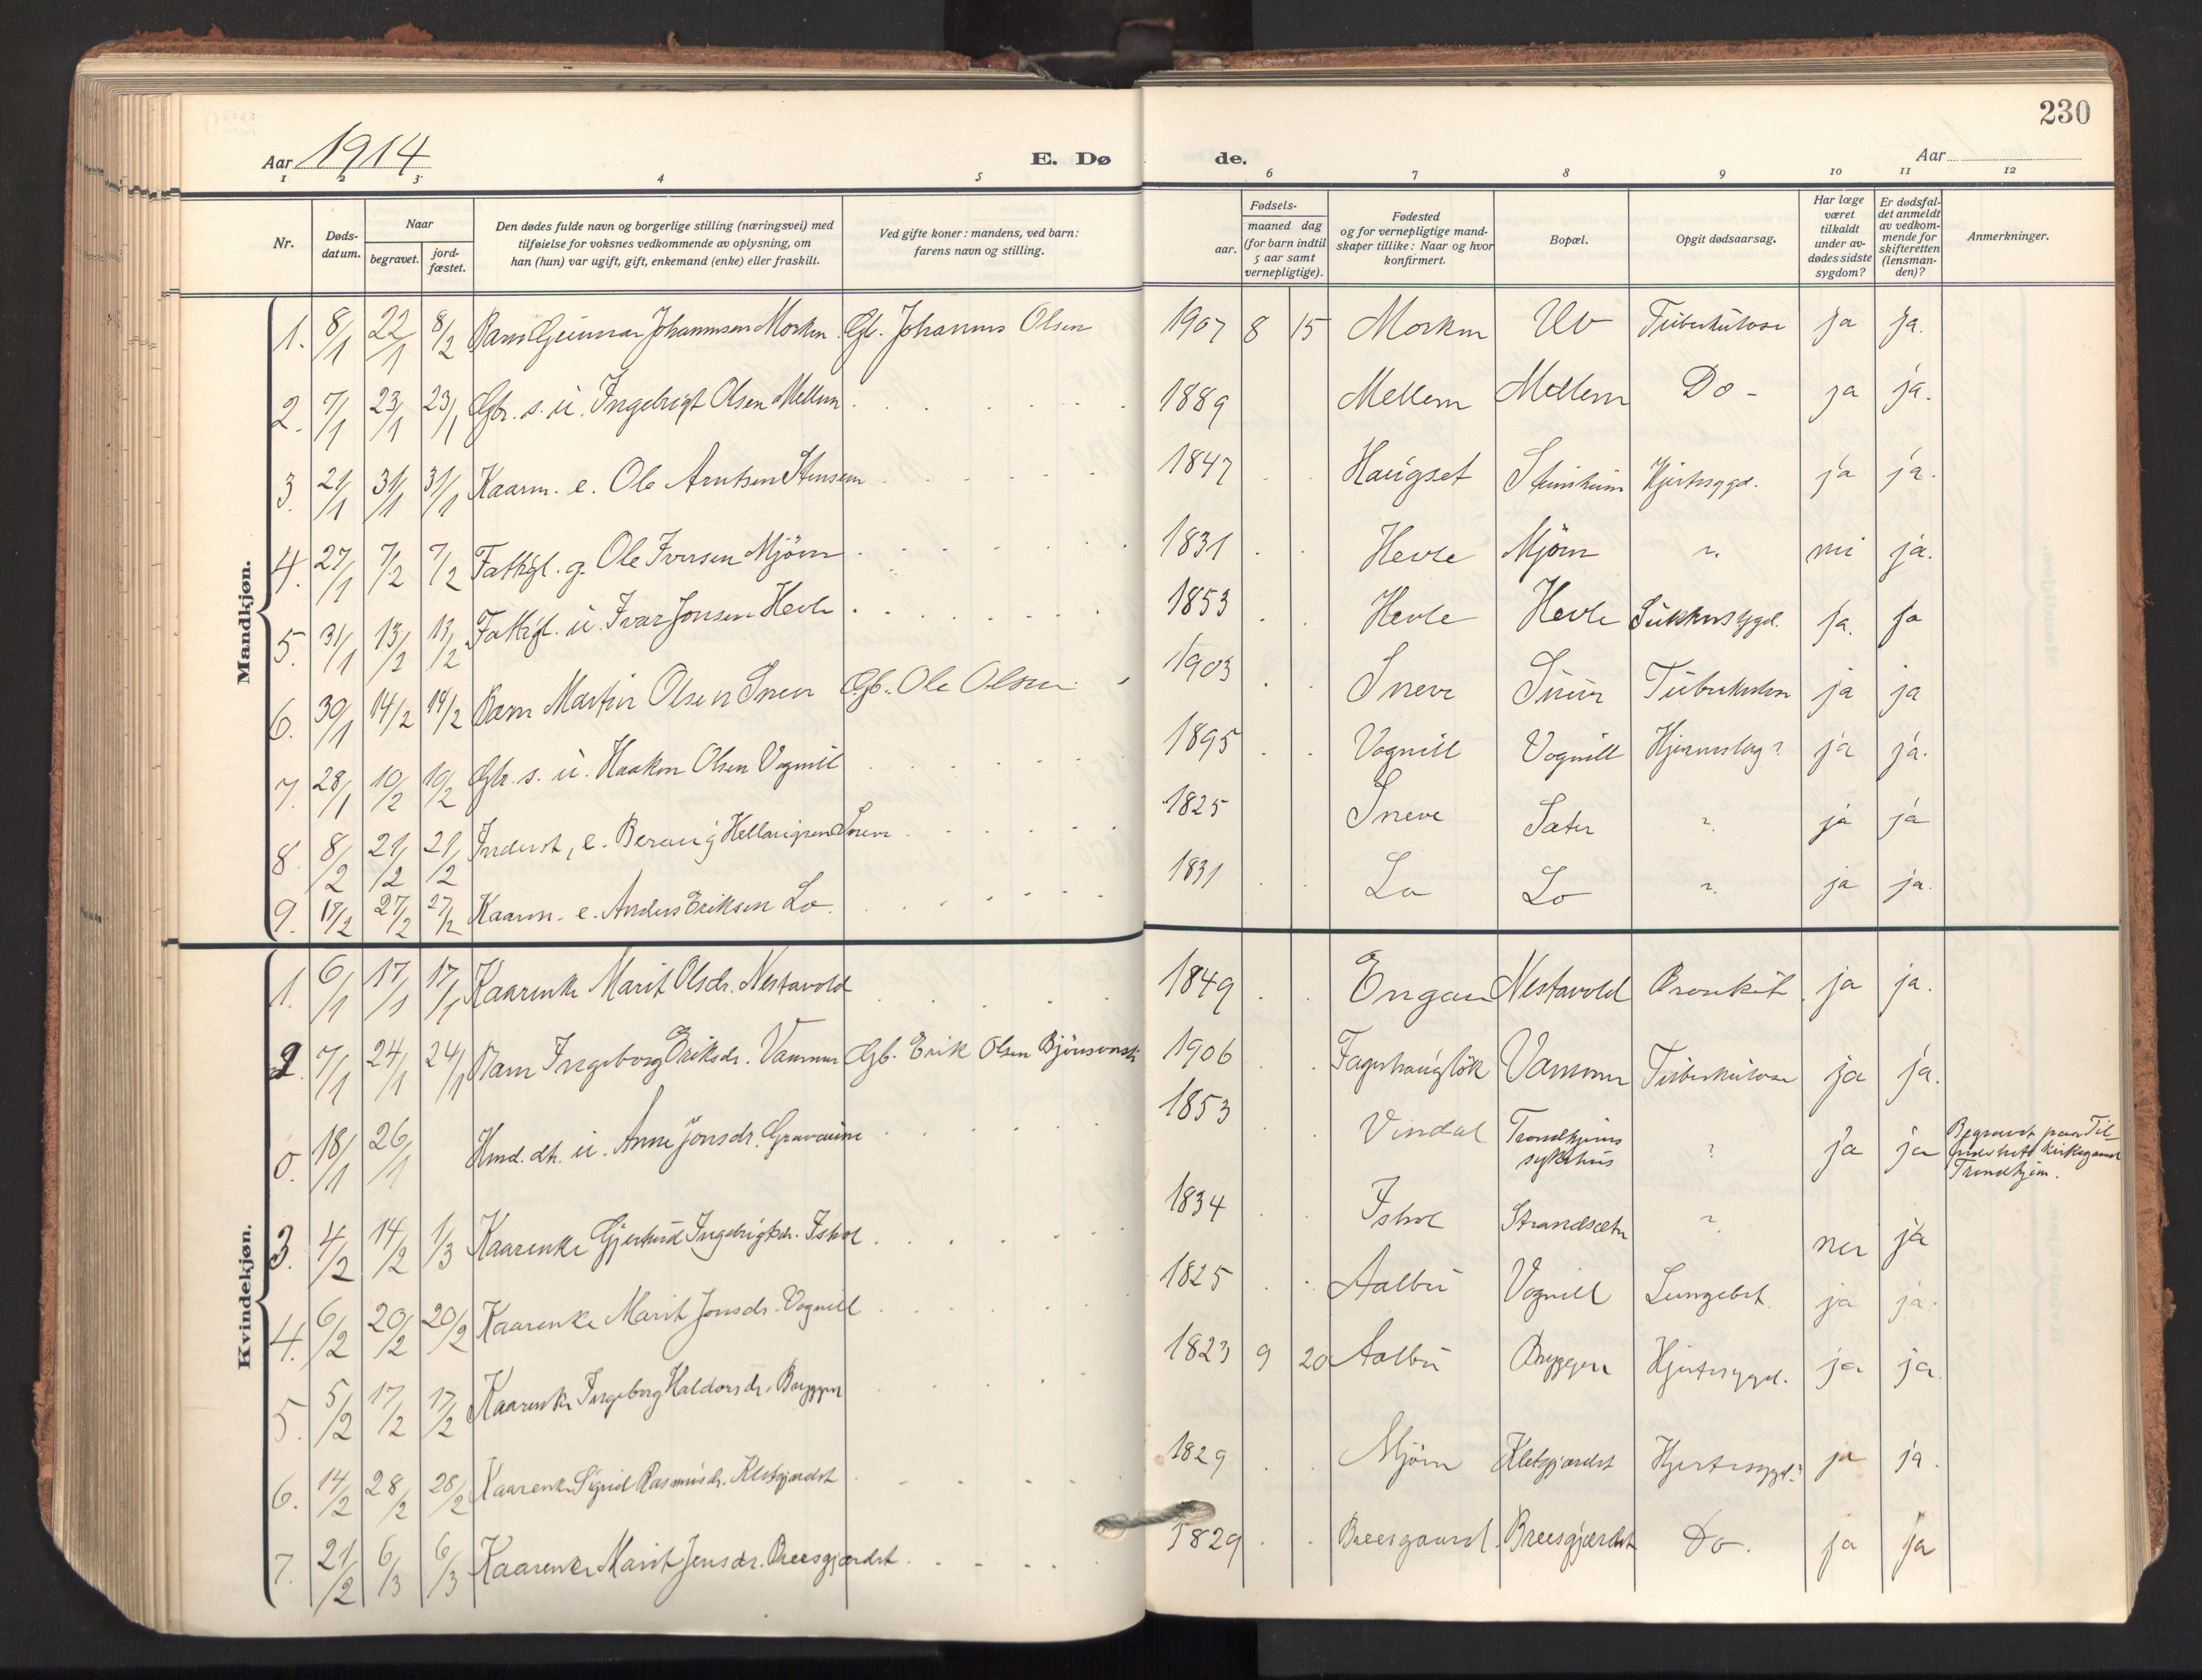 230
Aar 1914
E. Døde.
Aar
1 2 3 4 5 6 7 8 9 10 11 12
Nr.
Dødsdatum.
Naar
begravet.
jordfæstet.
Den dødes fulde navn og borgerlige stilling (næringsvei) med
tilføielse for voksnes vedkommende av oplysning, om
han (hun) var ugift, gift, enkemand (enke) eller fraskilt.
Ved gifte koner: mandens, ved barn:
farens navn og stilling.
Fødsels-
aar.
maaned dag
(for barn indtil
5 aar samt
vernepligtige).
Fødested
og for vernepligtige mand-
skaper tillike: Naar og hvor
konfirmert.
Bopæl.
Opgit dødsaarsag.
Har læge
været
tilkaldt
under av-
dødes sidste
sygdom?
Er dødsfal-
det anmeldt
av vedkom-
mende for
skifteretten
(lensman-
den)?
Anmerkninger.
Mandkjøn.
1. 8/1 22/1 8/2 Barn Gunnar Johannsen Morken Gb. Johannes Olsen 1907 8 15 Morken Uv Tuberkulose ja ja.
2. 7/1 23/1 23/1 Gbr. s. u. Ingebrigt Olsen Mellem 1889 Mellem Mellem Do - ja ja.
3. 21/1 31/1 31/1 Kaarm. e. Ole Arntsen Stensem 1847 Haugset Steinsheim Hjertesygd. ja ja.
4. 27/1 7/2 7/2 Fattigl. g. Ole Iversen Mjöen 1831 Hevle Mjöen ? nei ja.
5. 31/1 13/2 13/2 Fattigl. u. Ivar Jonsen Hevle 1853 Hevle Hevle Sukkersygd. ja. ja
6. 30/1 14/2 14/2 Barn Martin Olsen Sneve Gb. Ole Olsen 1903 Sneve Sneve Tuberkulose ja ja
7. 28/1 10/2 10/2 Gbr. s. u. Haakon Olsen Vognill 1895 Vognill Vognill Hjerneslag? ja ja.
8. 8/2 21/2 21/2 Inderst, e. Beraug Hellaugsen Sneve 1825 Sneve Sæter ? ja ja
9. 17/2 27/2 27/2 Kaarm. e. Anders Eriksen Lo. 1831 Lo Lo ? ja ja.
Kvindekjøn.
1. 6/1 17/1 17/1 Kaarenke Marit Olsdr. Nestavold 1849 Engan Nestavold Bronkit ja ja.
2. 7/1 24/1 24/1 Barn Ingeborg Eriksdr. Vammer Gb. Erik Olsen 1906 Fagerhaugløk Vammer Tuberkulose ja ja.
0. 18/1 26/1 Hmd. dt. u. Anne Jonsdr. Gravaune 1853 Vindal Trondhjems sykehus ? ja ja Begravet paa Tilfredshets Kirkegaard Trondhjem.
3. 4/2 14/2 1/3 Kaarenke Gjertrud Ingebrigtsdr. Ishol 1834 Ishol Strandsæter ? nei ja
4. 6/2 20/2 20/2 Kaarenke Marit Jonsdr. Vognill 1825 Aalbu Vognill Lungebet. ja ja.
5. 5/2 17/2 17/2 Kaarenke Ingeborg Haldorsdr. Bryggen 1823 9 20 Aalbu Bryggen Hjertesygd. ja ja.
6. 14/2 28/2 28/2 Kaarenke Sigrid Rasmusdr. Kletgjærdet 1829 Mjöen Kletgjærdet Hjertesygd.? ja ja.
7. 21/2 6/3 6/3 Kaarenke Marit Jensdr. Breesgjærdet 1829 Breesgaard Breesgjærdet Do. ja ja